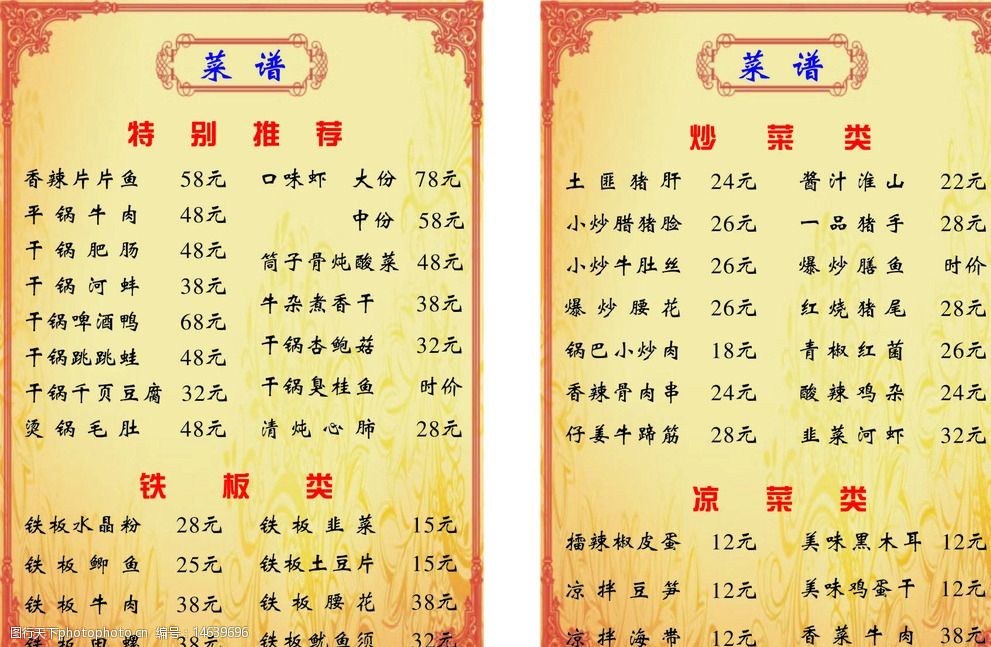 菜谱
特别推荐
香辣片片鱼 58元 口味虾 大份 78元
平锅牛肉 48元 中份 58元
干锅肥肠 48元 筒子骨炖酸菜 48元
干锅河蚌 38元 牛杂煮香干 38元
干锅啤酒鸭 68元 干锅杏鲍菇 32元
干锅跳跳蛙 48元 干锅臭桂鱼 时价
干锅千页豆腐 32元 清炖心肺 28元
烫锅毛肚 48元
铁板类
铁板水晶粉 28元 铁板韭菜 15元
铁板鲫鱼 25元 铁板土豆片 15元
铁板牛肉 38元 铁板腰花 38元
铁板田螺 38元 铁板鱿鱼须 32元
菜谱
炒菜类
土匪猪肝 24元 酱汁淮山 22元
小炒腊猪脸 26元 一品猪手 28元
小炒牛肚丝 26元 爆炒膳鱼 时价
爆炒腰花 26元 红烧猪尾 28元
锅巴小炒肉 18元 青椒红菌 26元
香辣骨肉串 24元 酸辣鸡杂 24元
仔姜牛蹄筋 28元 韭菜河虾 32元
凉菜类
擂辣椒皮蛋 12元 美味黑木耳 12元
凉拌豆笋 12元 美味鸡蛋干 12元
凉拌海带 12元 香菜牛肉 38元
图行天下photophoto.cn 编号：14639696